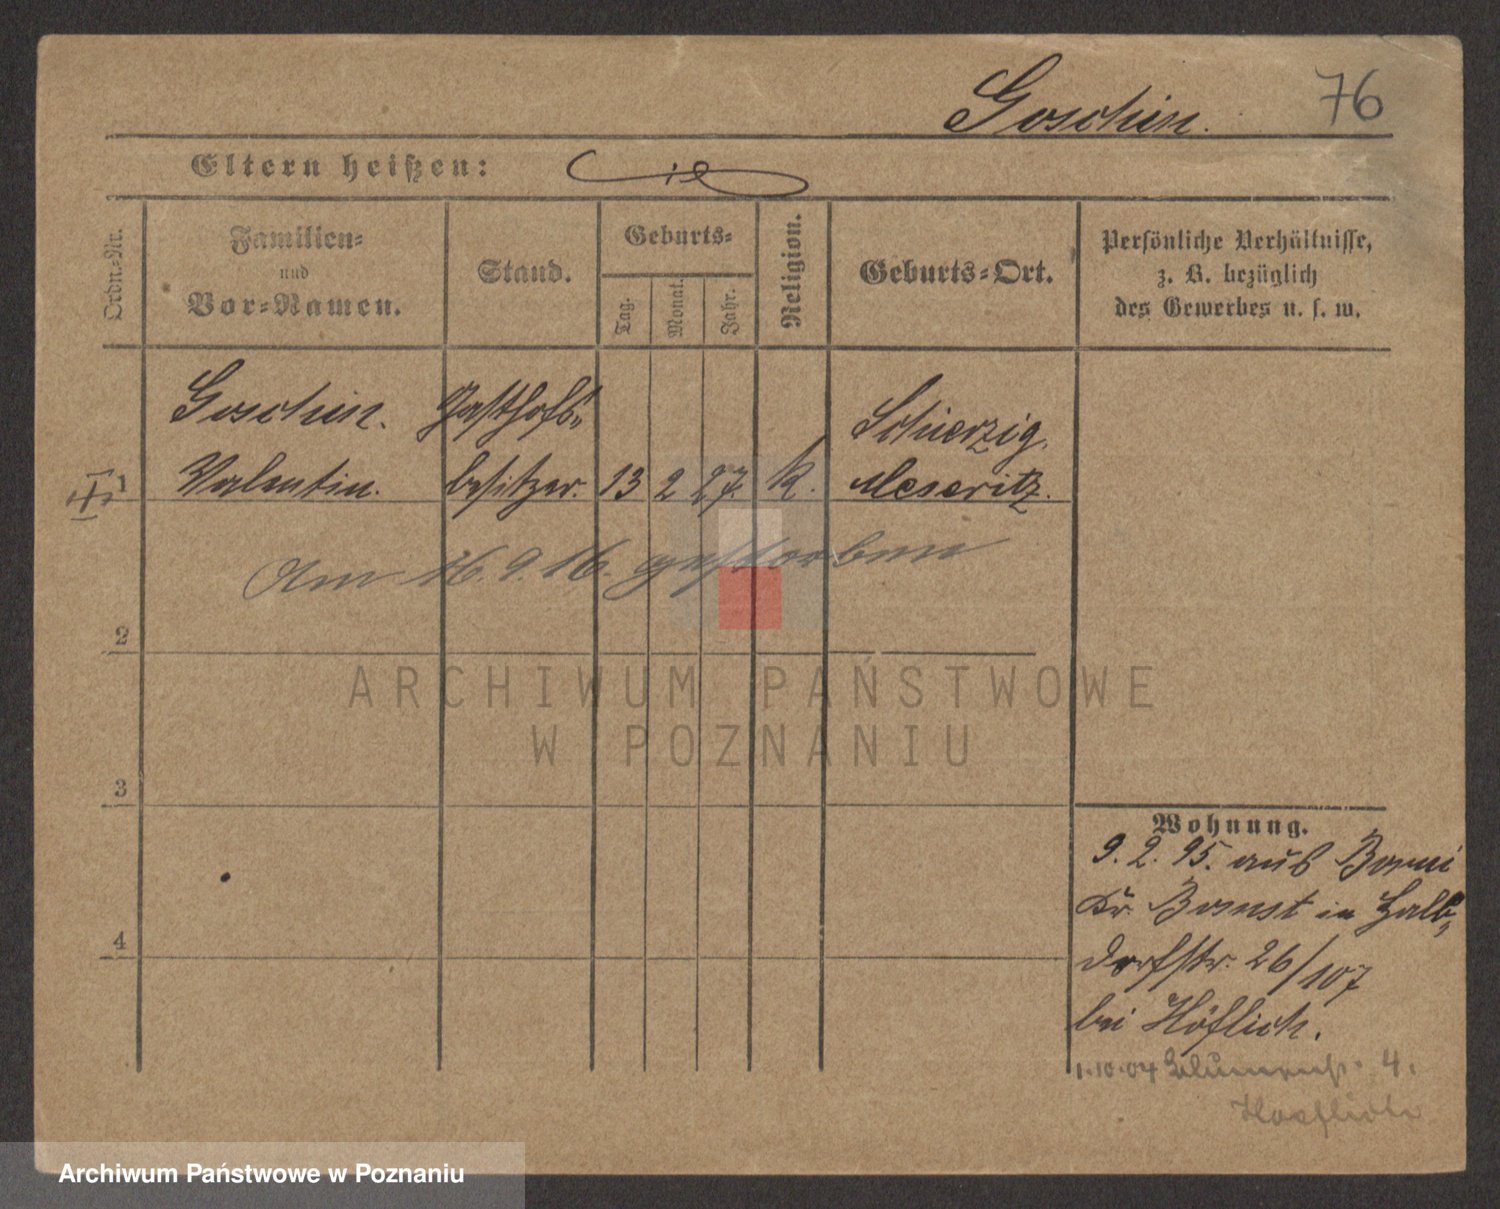 Goschin. 76
Eltern heißen:
Ordn.-Nr.
Familien-
und
Vor-Namen.
Stand.
Geburts-
Tag.
Monat.
Jahr.
Religion.
Geburts-Ort.
Persönliche Verhältnisse,
z. B. bezüglich
des Gewerbes u. s. w.
Goschin. Gasthofs-
Schierzig.
1 Valentin. besitzer. 13 2 27. k. Meseritz.
Am 16.9.16. gestorben
2
ARCHIWUM PAŃSTWOWE
W POZNANIU
3
Wohnung.
9. 2. 95. aus Bomst
Kr. Bomst in Halb-
dorfstr. 26/107
bei Höflich.
1.10.04 Blumenstr. 4.
Hoeflich
4
Archiwum Państwowe w Poznaniu